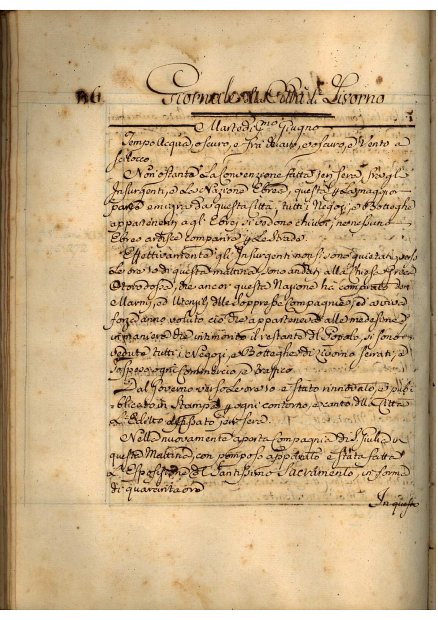 136 Giornale di Robba di Livorno
Martedì p.mo Giugno
Tempo Acqua, oscuro, e frà chiaro, e oscuro, e Vento a
scilocco.
Non ostante la convenzione fatta jeri sera, fra gl'
Insurgenti, e la Nazione Ebrea, questa p la maggior
parte emigra da questa città, tutti i Negozj, e Botteghe
appartenenti agl'Ebrei si vedono chiuse, ne nessun
Ebreo ardisce comparire p le strade.
Effettivamente gl'Insurgenti non si sono quietati,
le ore 10 di questa mattina sono andati alla Chiesa Greca
che ancor questa Nazione ha comprato dei
Marmi, ad Utensili delle soppresse Compagnie, ed a viva
forza anno voluto ciò che apparteneva alle medesime
in maniera che intimorito il restante del Popolo, si sono
vedute tutti i Negozj, e Botteghe di Livorno serrati, e
sospeso ogni Commercio, e traffico.
Dal Governo verso le ore 10 è stato rinnovato, e pub
blicato in stampa p ogni contorno, e canto della Città
l'Editto jeri sera.
Nella nuovamente aperta Compagnia di S. Giulia in
questa Mattina, con pomposo apparato è stata fatta
l'Esposizione del Santissimo Sacramento, in forma
di quarant'ore
In questa